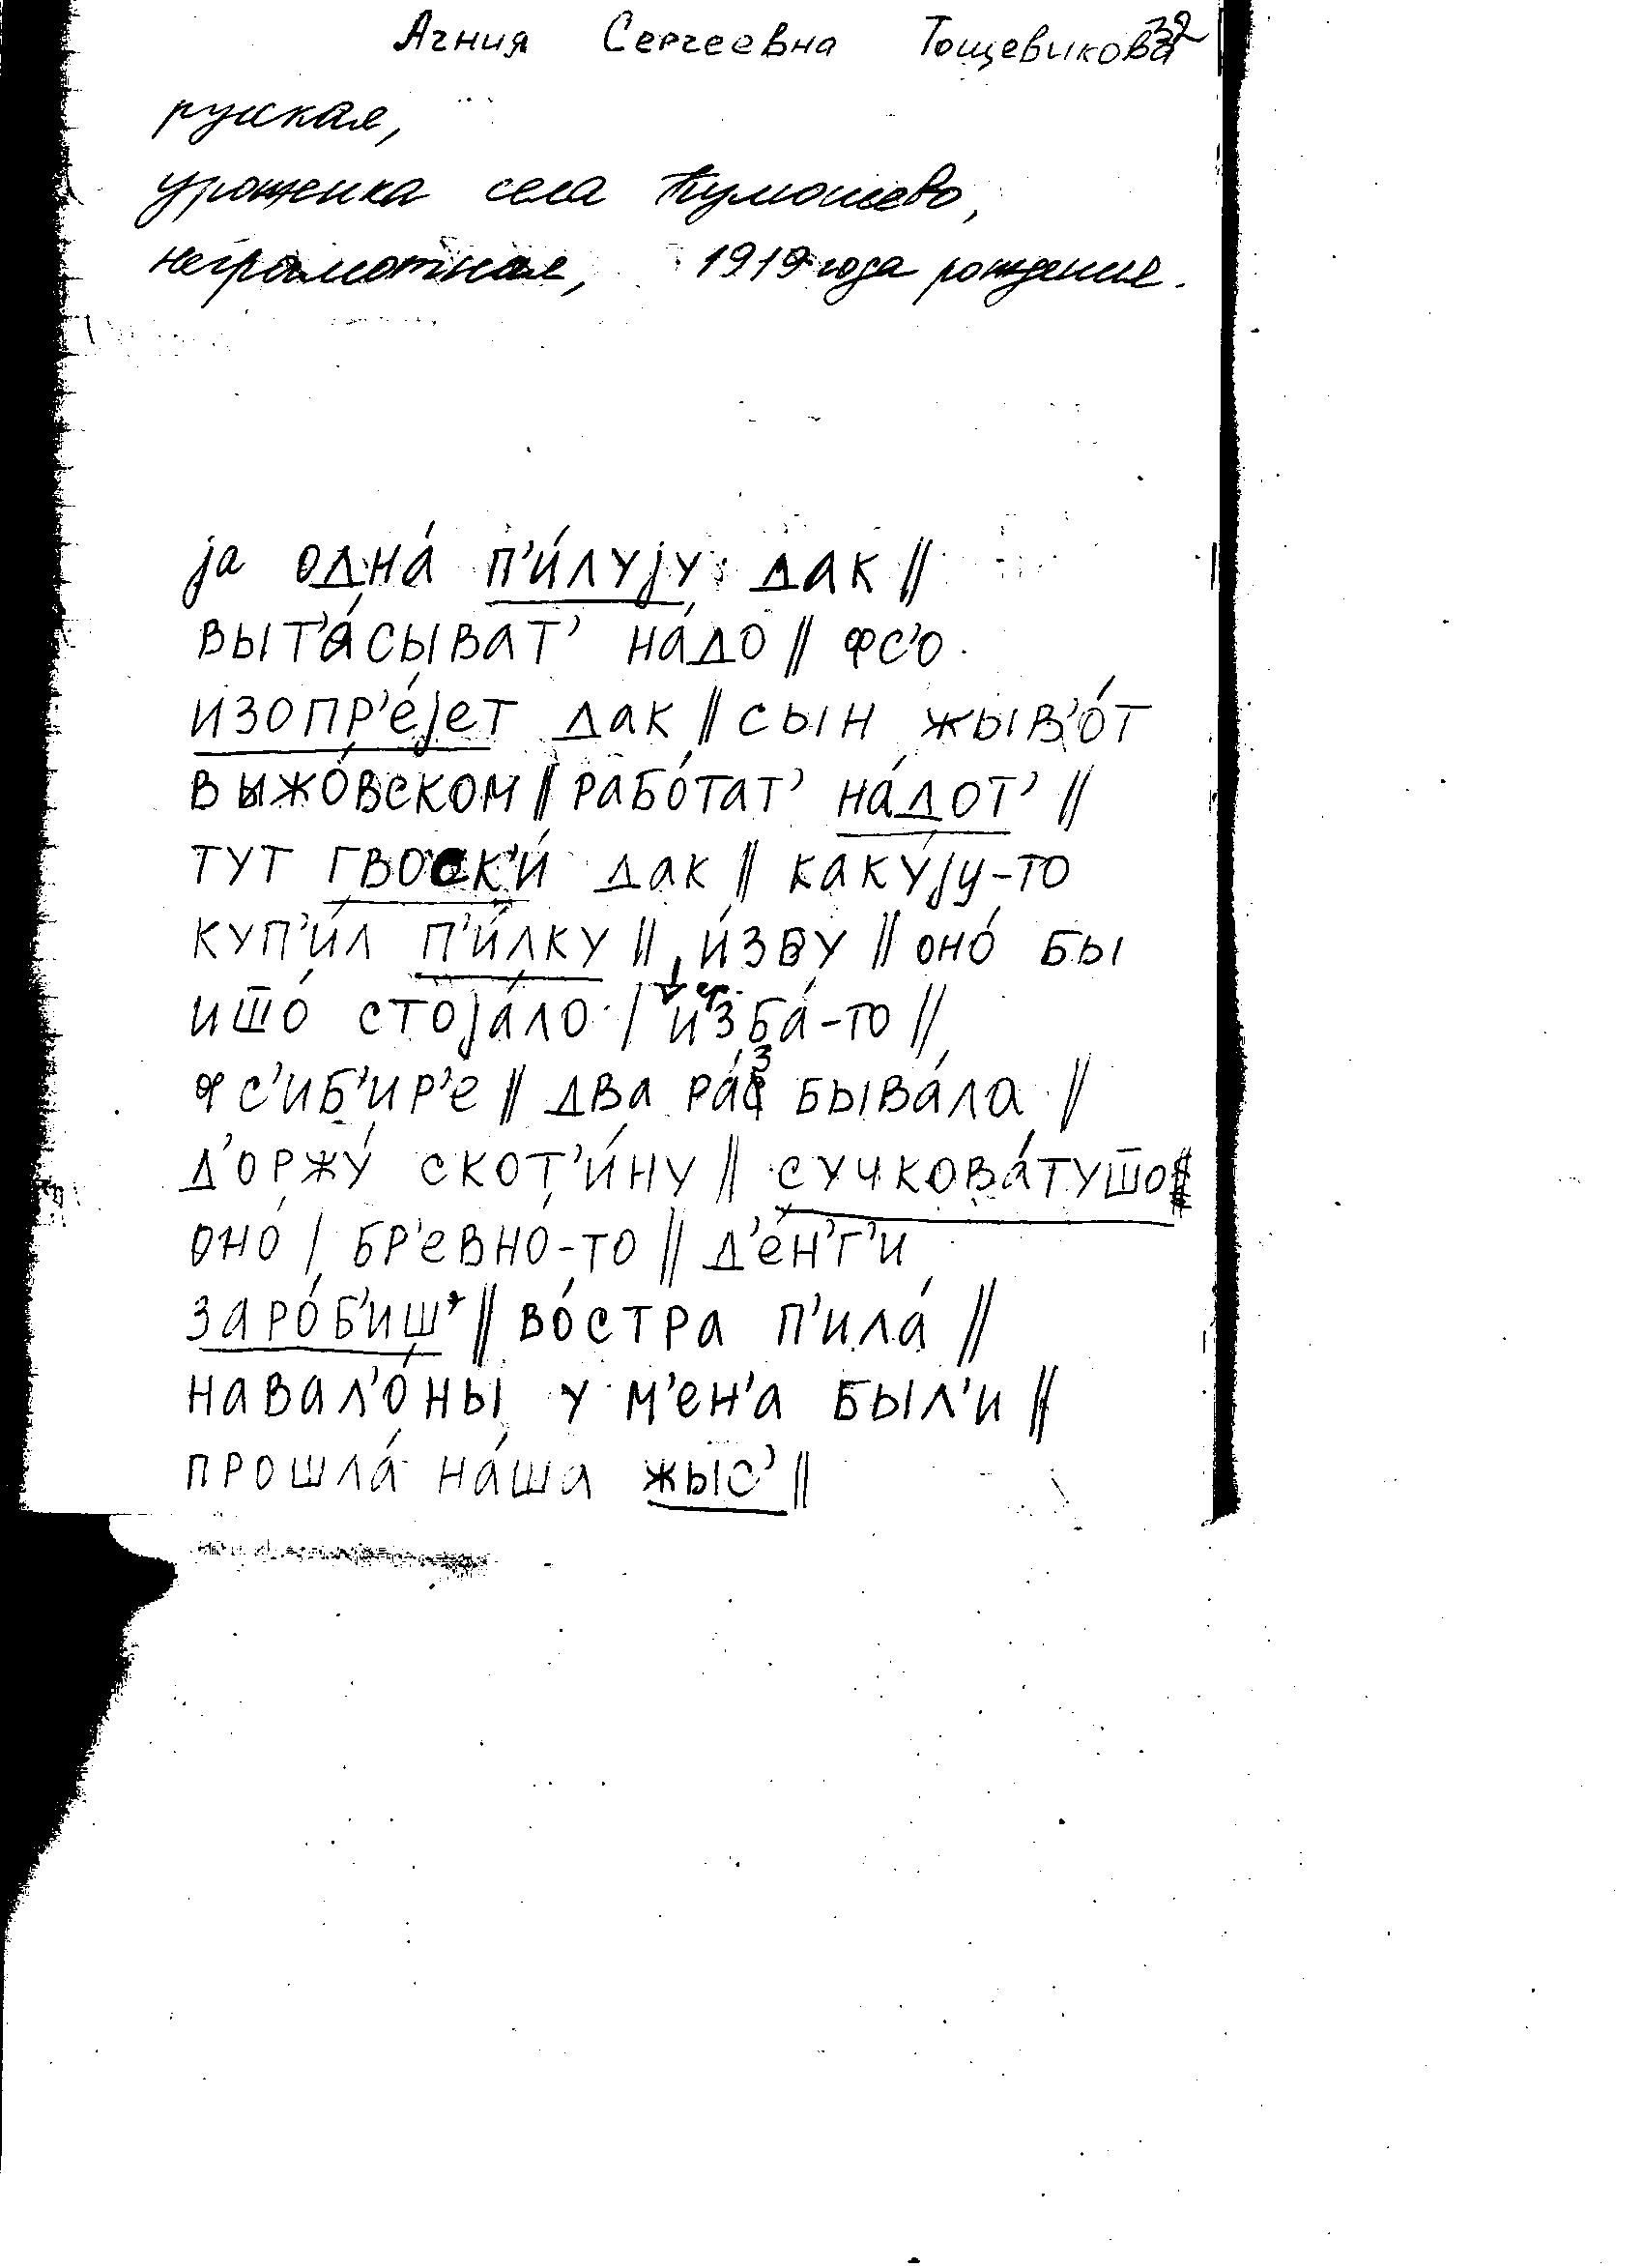 Агния Сергеевна Тощевикова 32
русская,
уроженка села Тимошево,
неграмотная, 1919 года рождения.
ја однá п'и́лују дак //
выт'áсыват' нáдо // фс'о
изопр'éјет дак // сын жыв'óт
выжóвском // рабóтат' нáдот' //
тут гвоск'и́ дак // какýју-то
куп'и́л п'и́лку // и́зву // онó бы
ишшó стојáло / избá-то //
ф с'иб'ир'е // два рáз бывáла //
д'оржý скот'и́ну // сучковáтушо
онó / бр'евнó-то // д'éн'г'и
зарóб'иш' // вóстра п'илá //
навал'óны у м'ен'а был'и //
прошлá нáша жыс' //